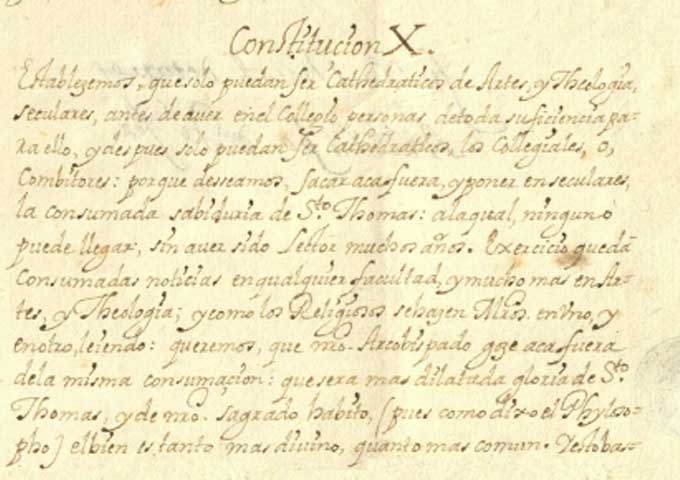 Constitucion X.
Establezemos, que solo puedan ser Cathedraticos de Artes, y Theologia,
seculares, antes de aver en el Collegio personas de toda suficiencia pa-
ra ello, y despues solo puedan ser Cathedraticos, los Collegiales, o,
Combitores: porque desseamos, sacar aca fuera, y poner en seculares,
la consumada sabiduria de S.to Thomas: a la qual, ninguno
puede llegar, sin aver sido Lector muchos años. Exercicio que dà
consumadas noticias en qualquier facultad, y mucho mas en Ar-
tes, y Theologia; y como los Religiosos se hazen Mros. en vno, y
en otro, leiendo: queremos, que nro. Arcobispado goze aca fuera
de la misma consumacion: que sera mas dilatada gloria de S.to
Thomas, y de nro. sagrado habito, (pues como dixo el Phylso-
pho) el bien es tanto mas divino, quanto mas comun. Y esto bas-